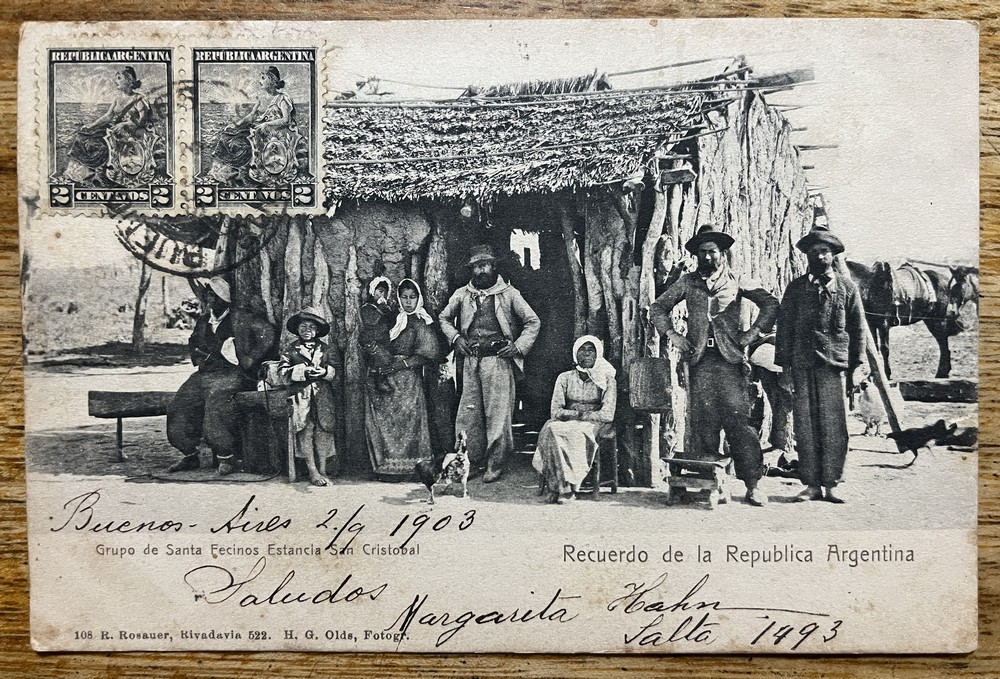 REPÚBLICA ARGENTINA REPÚBLICA ARGENTINA
2 CENTAVOS 2 2 CENTAVOS 2
Buenos-Aires 2./9 1903
Grupo de Santa Fecinos Estancia San Cristobal
Recuerdo de la Republica Argentina
Saludos
Margarita Hahn
Salta 1493
108 R. Rosauer, Rivadavia 522. H. G. Olds, Fotogr.